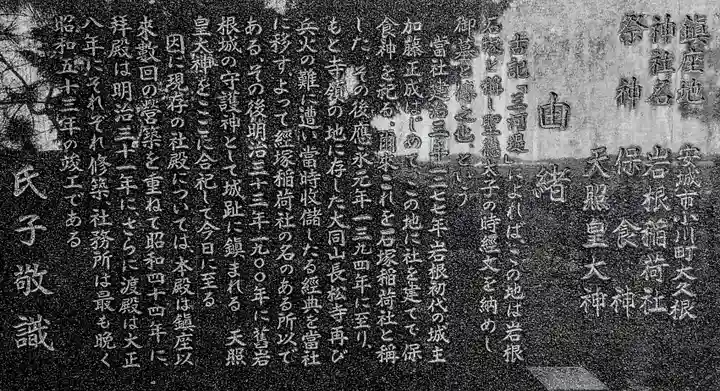 鎮座地 安城市小川町大久根
神社名 岩根稲荷社
祭神 保食神
天照皇大神
由緒
古記「三河堤」によれば、この地は岩根
石塚と称し聖徳太子の時經文を納めし
御墓と傳之也、という
當社建治三年一二七七年岩根初代の城主
加藤正成はじめて、この地に社を建てて保
食神を祀る。爾来これを石塚稲荷社と稱
した。その後應永元年一三九四年に至り、
もと寺領の地に存した大同山長松寺再び
兵火の難に遭い當時收儲したる經典を當社
に移すよって經塚稲荷社の名のある所以で
ある。その後明治三十三年一九〇〇年に舊岩
根城の守護神として城趾に鎮まれる 天照
皇大神をここに合祀して今日に至る
因に現存の社殿については、本殿は鎮座以
来数回の營築を重ねて昭和四十四年に、
拝殿は明治三十一年にさらに渡殿は大正
八年にそれぞれ修築、社務所は最も晩く
昭和五十三年の竣工である。
氏子敬識